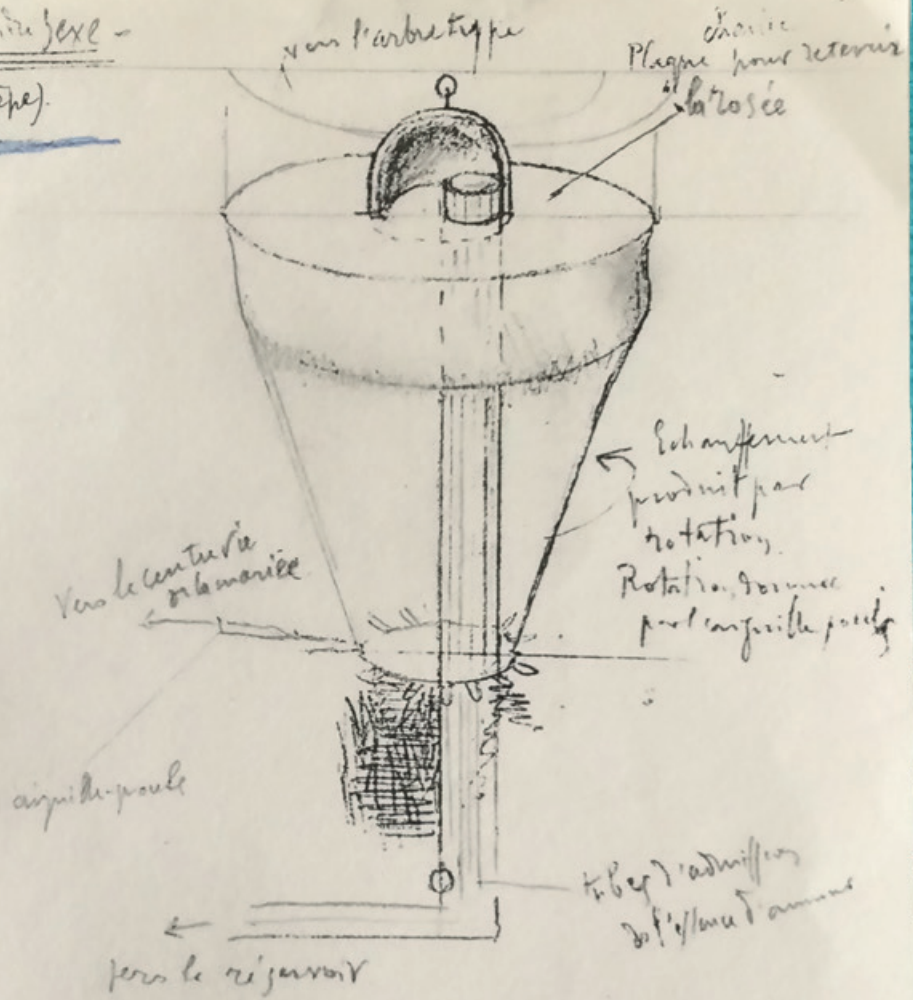 Sexe -
vers l'arbre type
Plaque pour retenir
la rosée
êpe).
Echauffement
produit par
rotation.
Rotation donnée
par l'aiguille pouls
Vers le centre vie
de la mariée
aiguille-pouls
tubes d'admission
de l'essence d'amour
vers le réservoir